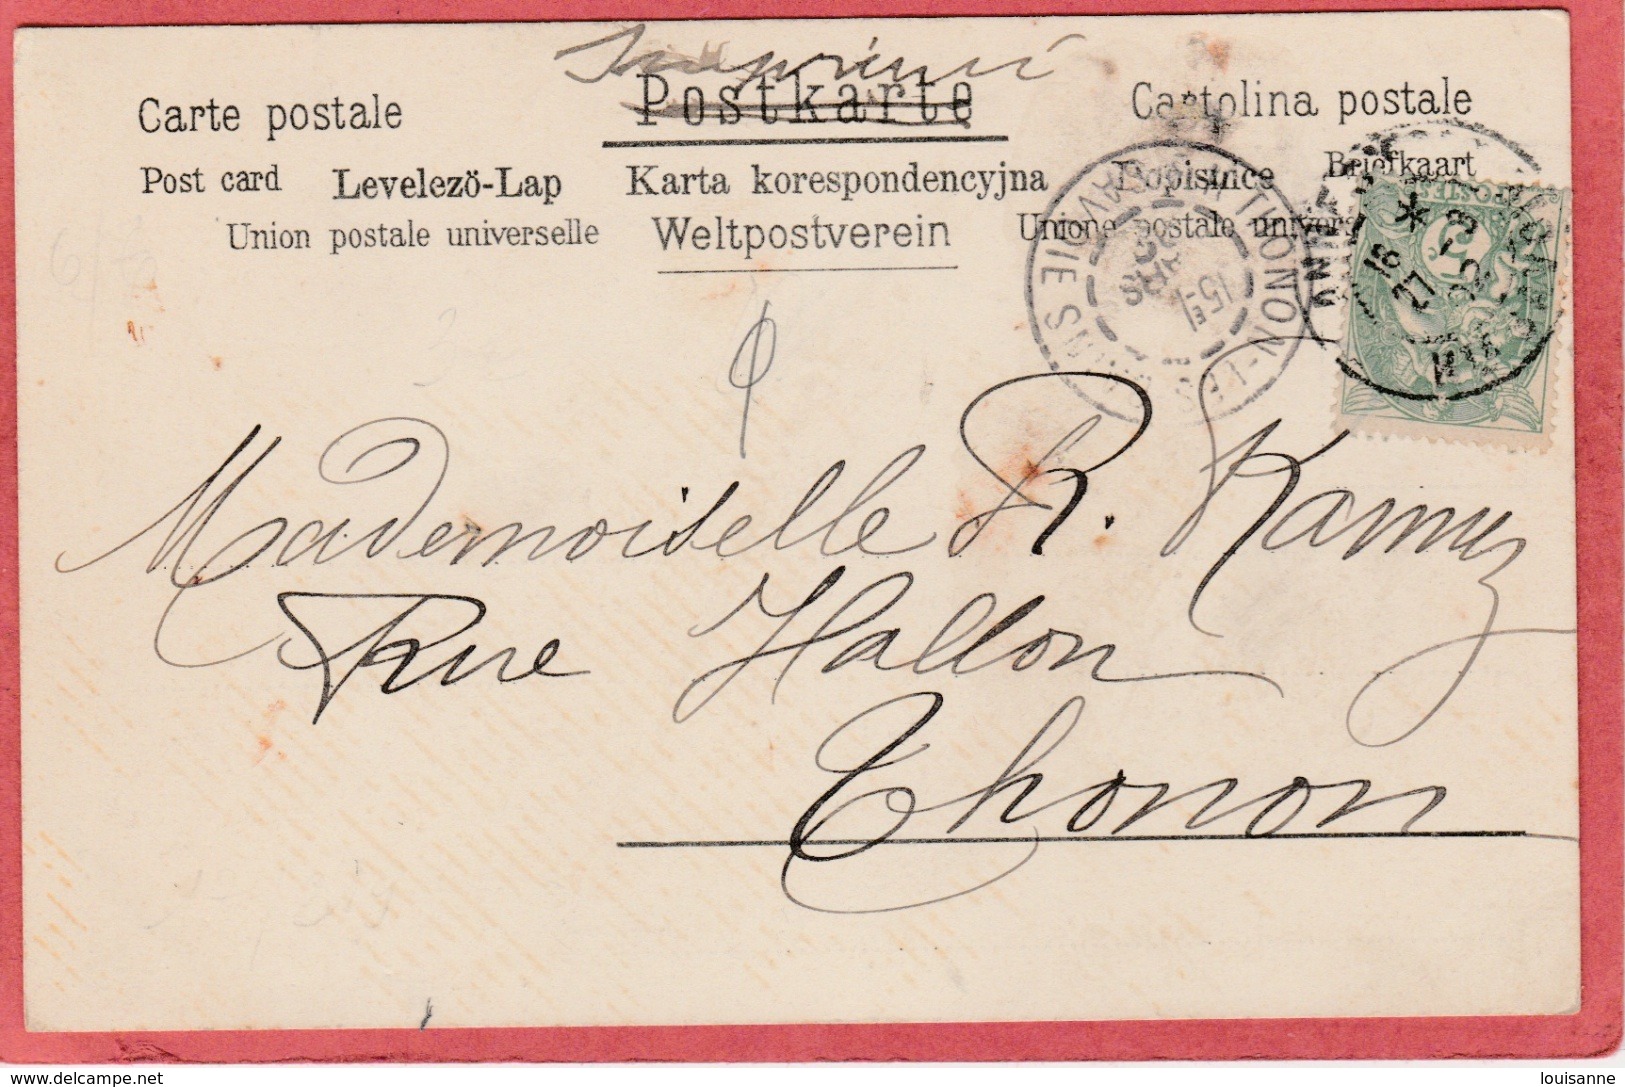 Imprimé
Carte postale Postkarte Cartolina postale
Post card Levelezö-Lap Karta korespondencyjna Dopisnice Briefkaart
Union postale universelle Weltpostverein Unione postale univers
THONON-LES-BAINS
15 E
18 *
27 -3
POSTES
5
Mademoiselle R. Kamuz
Rue Hallon
Thonon
delcampe.net
louisanne